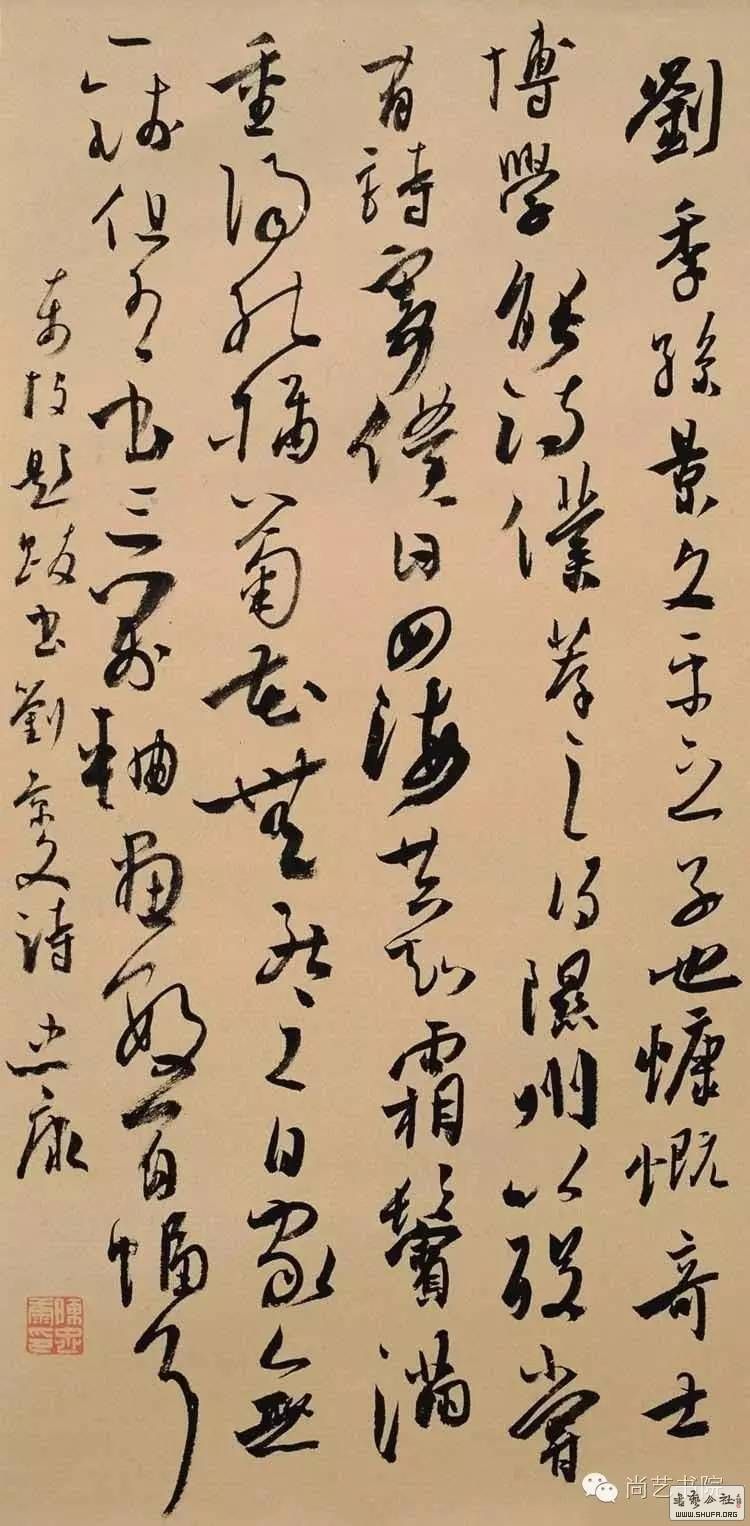 劉季孫景文平之子也慷慨奇士
博學能詩僕薦之得隰州以歿嘗
有詩寄僕曰四海共知霜鬢滿
重陽插菊花無死之日家無
一錢但有書三萬軸畫數百幅耳
東坡題跋書劉景文詩 忠康
陳忠康印
尚艺书院
书艺公社
WWW.SHUFA.ORG